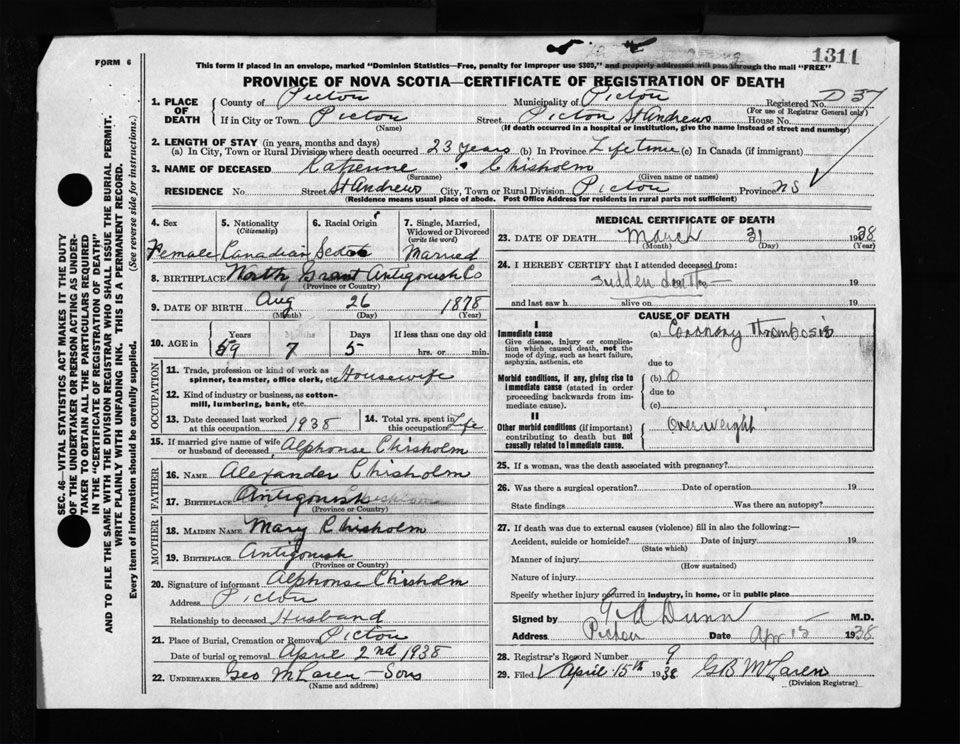 FORM 6
1311
This form if placed in an envelope, marked "Dominion Statistics—Free, penalty for improper use $300," and properly addressed will pass through the mail "FREE"
PROVINCE OF NOVA SCOTIA—CERTIFICATE OF REGISTRATION OF DEATH
1. PLACE OF DEATH
County of Pictou Municipality of Pictou Registered No. D 37
(For use of Registrar General only)
If in City or Town Pictou Street Pictou St Andrews House No.
(Name) (If death occurred in a hospital or institution, give the name instead of street and number)
2. LENGTH OF STAY (in years, months and days)
(a) In City, Town or Rural Division where death occurred 23 years (b) In Province Lifetime (c) In Canada (if immigrant)
3. NAME OF DECEASED Katherine Chisholm
(Surname) (Given name or names)
RESIDENCE No. Street St Andrews City, Town or Rural Division Pictou Province NS
(Residence means usual place of abode. Post Office Address for residents in rural parts not sufficient)
4. Sex 5. Nationality (Citizenship) 6. Racial Origin 7. Single, Married, Widowed or Divorced (write the word)
Female Canadian Married
8. BIRTHPLACE North Grant Antigonish Co
(Province or Country)
9. DATE OF BIRTH Aug 26 1878
(Month) (Day) (Year)
10. AGE in Years Months Days If less than one day old
59 7 5 hrs. or min.
OCCUPATION
11. Trade, profession or kind of work as spinner, teamster, office clerk, etc. Housewife
12. Kind of industry or business, as cotton-mill, lumbering, bank, etc.
13. Date deceased last worked at this occupation 1938 14. Total yrs. spent in this occupation Life
15. If married give name of wife or husband of deceased Alphonse Chisholm
FATHER
16. NAME Alexander Chisholm
17. BIRTHPLACE Antigonish
(Province or Country)
MOTHER
18. MAIDEN NAME Mary Chisholm
19. BIRTHPLACE Antigonish
(Province or Country)
20. Signature of informant Alphonse Chisholm
Address Pictou
Relationship to deceased Husband
21. Place of Burial, Cremation or Removal Pictou
Date of burial or removal April 2nd 1938
22. UNDERTAKER Geo McLaren Sons
(Name and address)
MEDICAL CERTIFICATE OF DEATH
23. DATE OF DEATH March 31 1938
(Month) (Day) (Year)
24. I HEREBY CERTIFY that I attended deceased from:
Sudden death 19
and last saw h alive on 19
CAUSE OF DEATH
I
Immediate cause (a) Coronary Thrombosis
Give disease, injury or complication which caused death, not the mode of dying, such as heart failure, asphyxia, asthenia, etc
due to
Morbid conditions, if any, giving rise to immediate cause (stated in order proceeding backwards from immediate cause) (b) 0
due to
(c)
II
Other morbid conditions (if important) contributing to death but not causally related to immediate cause. Overweight
25. If a woman, was the death associated with pregnancy?
26. Was there a surgical operation? Date of operation 19
State findings Was there an autopsy?
27. If death was due to external causes (violence) fill in also the following:—
Accident, suicide or homicide? Date of injury 19
(State which)
Manner of injury
(How sustained)
Nature of injury
Specify whether injury occurred in industry, in home, or in public place
Signed by G A Dunn M.D.
Address Pictou Date Apr 1938
28. Registrar's Record Number 9
29. Filed April 15th 1938 GB McLaren
(Division Registrar)
SEC. 46—VITAL STATISTICS ACT MAKES IT THE DUTY
OF THE UNDERTAKER OR PERSON ACTING AS UNDERTAKER
TO OBTAIN ALL THE PARTICULARS REQUIRED
IN THE "CERTIFICATE OF REGISTRATION OF DEATH"
AND TO FILE THE SAME WITH THE DIVISION REGISTRAR WHO SHALL ISSUE THE BURIAL PERMIT.
WRITE PLAINLY WITH UNFADING INK. THIS IS A PERMANENT RECORD.
Every item of information should be carefully supplied. (See reverse side for instructions.)